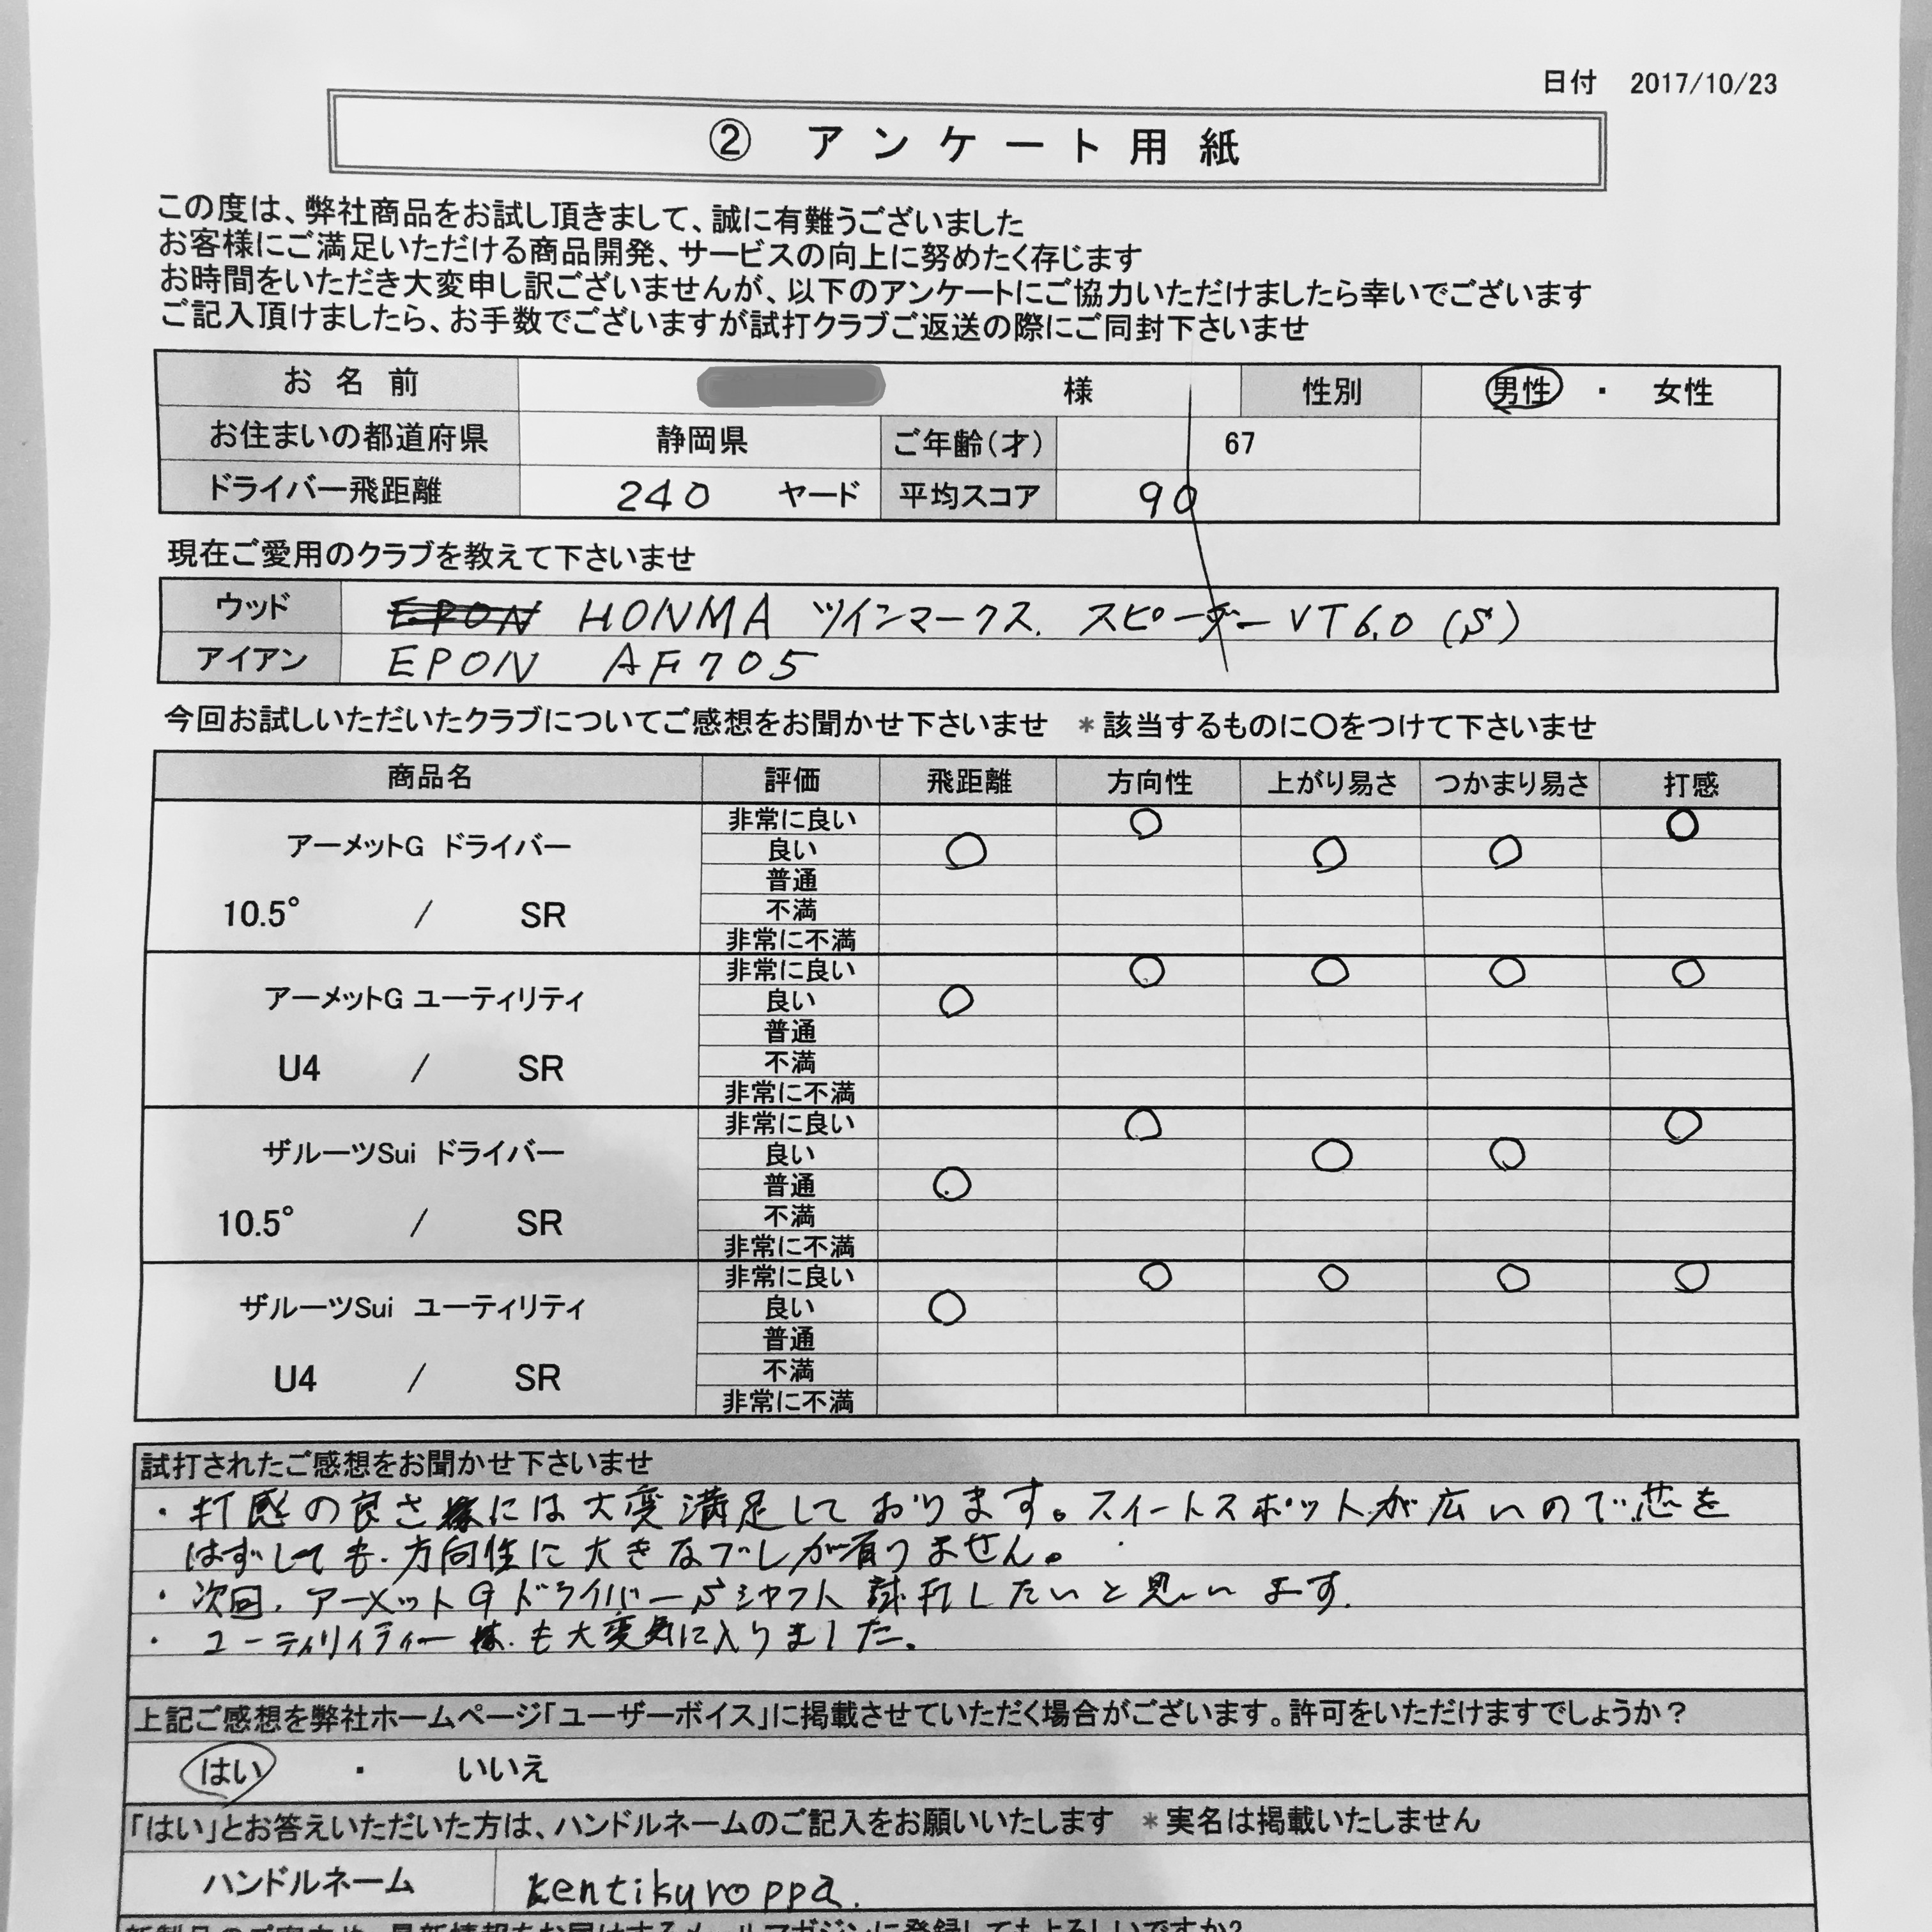 日付 2017/10/23
② アンケート用紙
この度は、弊社商品をお試し頂きまして、誠に有難うございました
お客様にご満足いただける商品開発、サービスの向上に努めたく存じます
お時間をいただき大変申し訳ございませんが、以下のアンケートにご協力いただけましたら幸いでございます
ご記入頂けましたら、お手数でございますが試打クラブご返送の際にご同封下さいませ
お名前 様 性別 男性 ・ 女性
お住まいの都道府県 静岡県 ご年齢(才) 67
ドライバー飛距離 240 ヤード 平均スコア 90
現在ご愛用のクラブを教えて下さいませ
ウッド EPON HONMA ツインマークス. スピーダーVT6.0 (S)
アイアン EPON AF705
今回お試しいただいたクラブについてご感想をお聞かせ下さいませ *該当するものに〇をつけて下さいませ
商品名 評価 飛距離 方向性 上がり易さ つかまり易さ 打感
アーメットG ドライバー
10.5° / SR
非常に良い 〇 〇
良い 〇 〇 〇
普通
不満
非常に不満
アーメットG ユーティリティ
U4 / SR
非常に良い 〇 〇 〇 〇
良い 〇
普通
不満
非常に不満
ザルーツSui ドライバー
10.5° / SR
非常に良い 〇 〇
良い 〇 〇
普通 〇
不満
非常に不満
ザルーツSui ユーティリティ
U4 / SR
非常に良い 〇 〇 〇 〇
良い 〇
普通
不満
非常に不満
試打されたご感想をお聞かせ下さいませ
・打感の良さには大変満足しております。スイートスポットが広いので芯を
はずしても.方向性に大きなブレが有りません。
・次回.アーメットGドライバーSシャフト試打したいと思います.
・ユーティリイティーも大変気に入りました。
上記ご感想を弊社ホームページ「ユーザーボイス」に掲載させていただく場合がございます。許可をいただけますでしょうか?
はい ・ いいえ
「はい」とお答えいただいた方は、ハンドルネームのご記入をお願いいたします *実名は掲載いたしません
ハンドルネーム kentikuroppa.